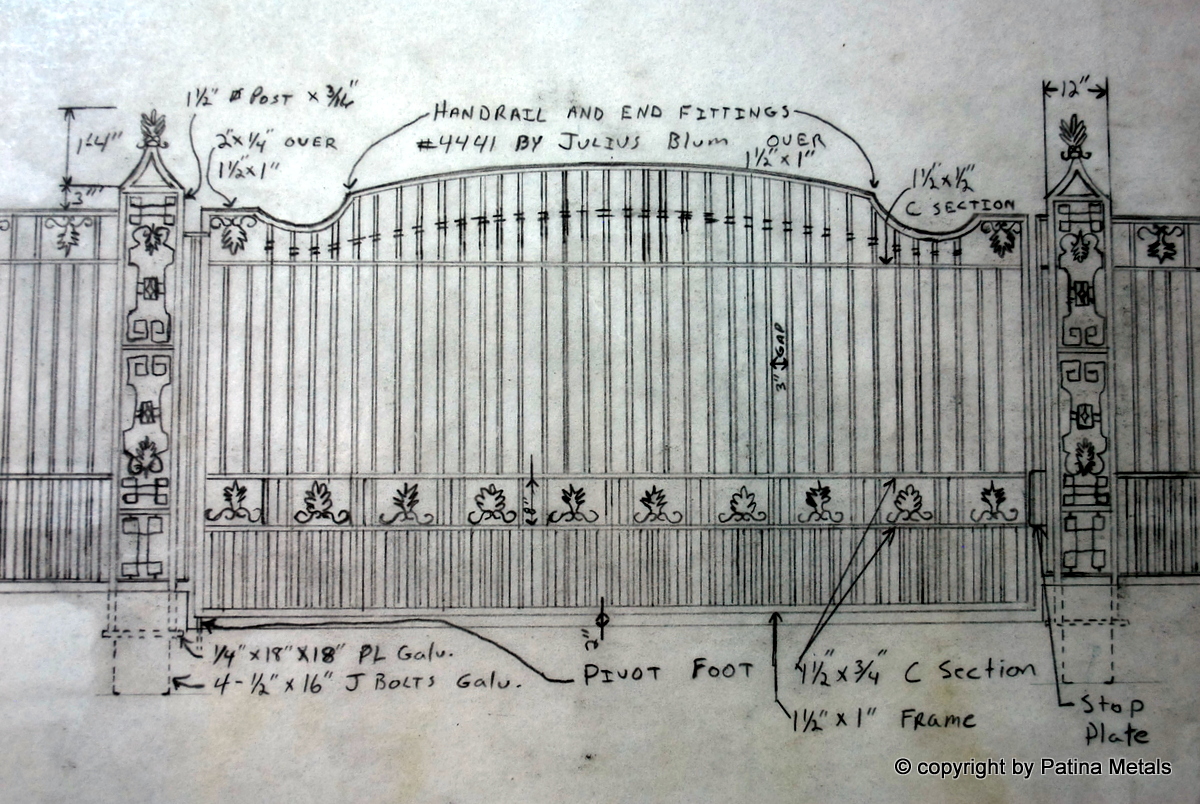 1½" Ø POST × 3/16"
12"
HANDRAIL AND END FITTINGS
1'-4"
2"×¼" OVER
#4441 BY JULIUS Blum OVER
1½"×1"
1½"×1"
3"
1½"×½"
C SECTION
3" GAP
8"
2"
¼"×18"×18" PL Galv.
PIVOT FOOT
1½"×¾" C Section
4-½"×16" J BOLTS Galv.
Stop
Plate
1½"×1" FRAME
© copyright by Patina Metals